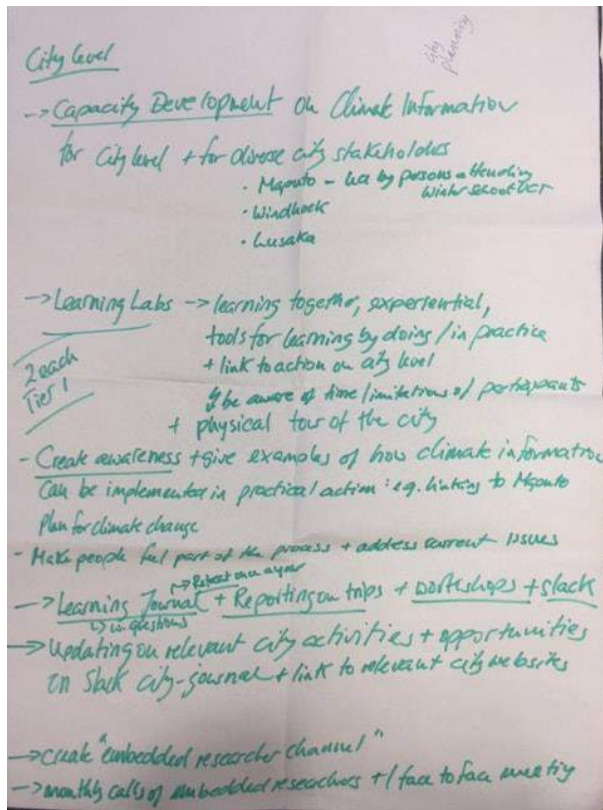 city planning
City level
-> Capacity Development on Climate Information
for City level + for diverse city stakeholders
• Maputo - led by persons attending
Winter school UCT
• Windhoek
• Lusaka
-> Learning Labs -> learning together, experiential,
tools for learning by doing / in practice
+ link to action on city level
2 each
Tier 1
↳ be aware of time limitations of participants
+ physical tour of the city
- Create awareness + give examples of how climate information
Can be implemented in practical action : e.g. linking to Maputo
Plan for climate change
- Make people feel part of the process + address current issues
-> Report once a year
-> Learning Journal + Reporting on trips + workshops + slack
↳ questions
-> Updating on relevant city activities + opportunities
on Slack city-journal + link to relevant city websites
-> create "embedded researcher channel"
-> monthly calls of embedded researchers + 1 face to face meeting